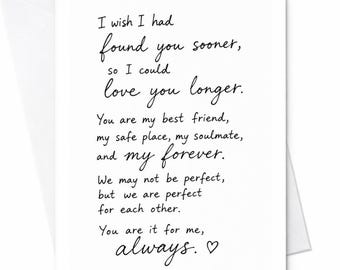 I wish I had
found you sooner,
so I could
love you longer.
You are my best friend,
my safe place, my soulmate,
and my forever.
We may not be perfect,
but we are perfect
for each other.
You are it for me,
always. ♡